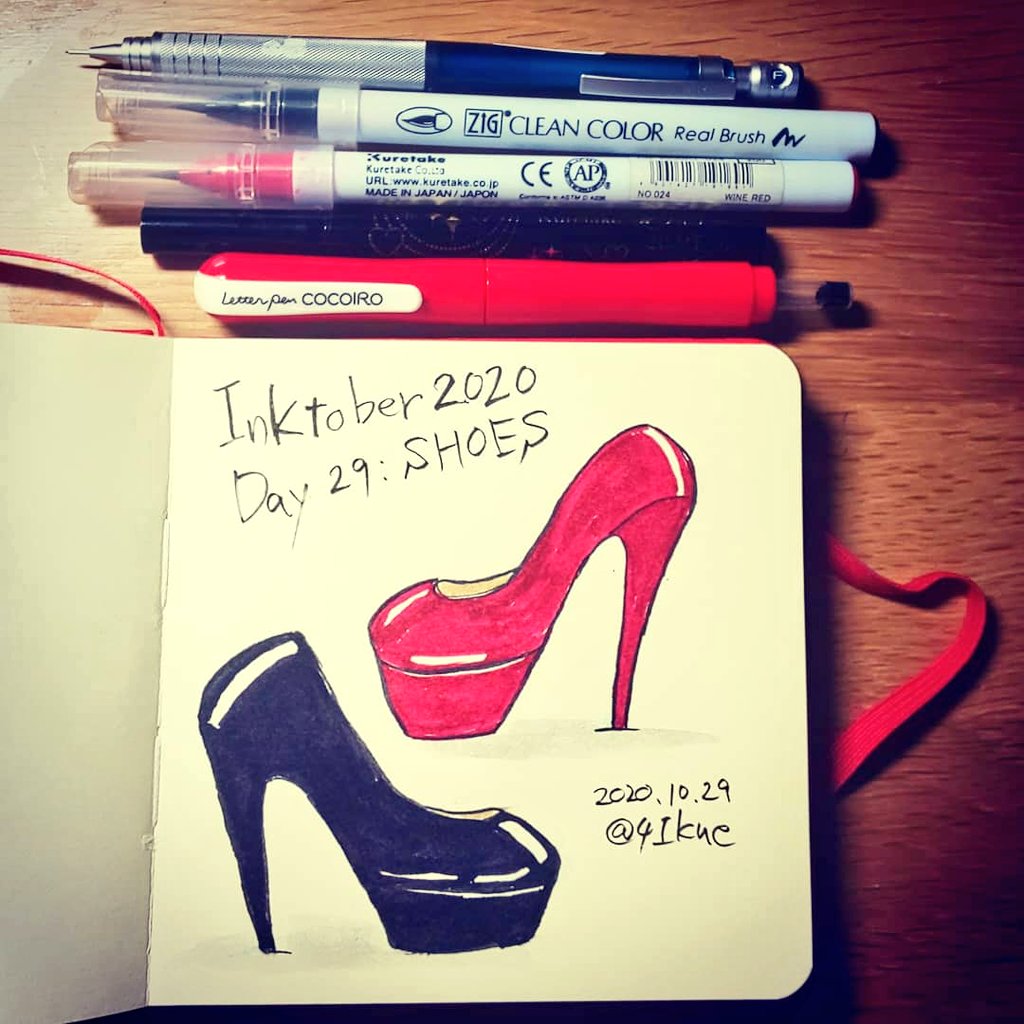 ZIG CLEAN COLOR Real Brush
Kuretake
Kuretake Co.,Ltd
URL:www.kuretake.co.jp
MADE IN JAPAN / JAPON
CE
AP
Conforms to ASTM D 4236
NO.024
WINE RED
Letter pen COCOIRO
Inktober 2020
Day 29: SHOES
2020.10.29
@4Ikue